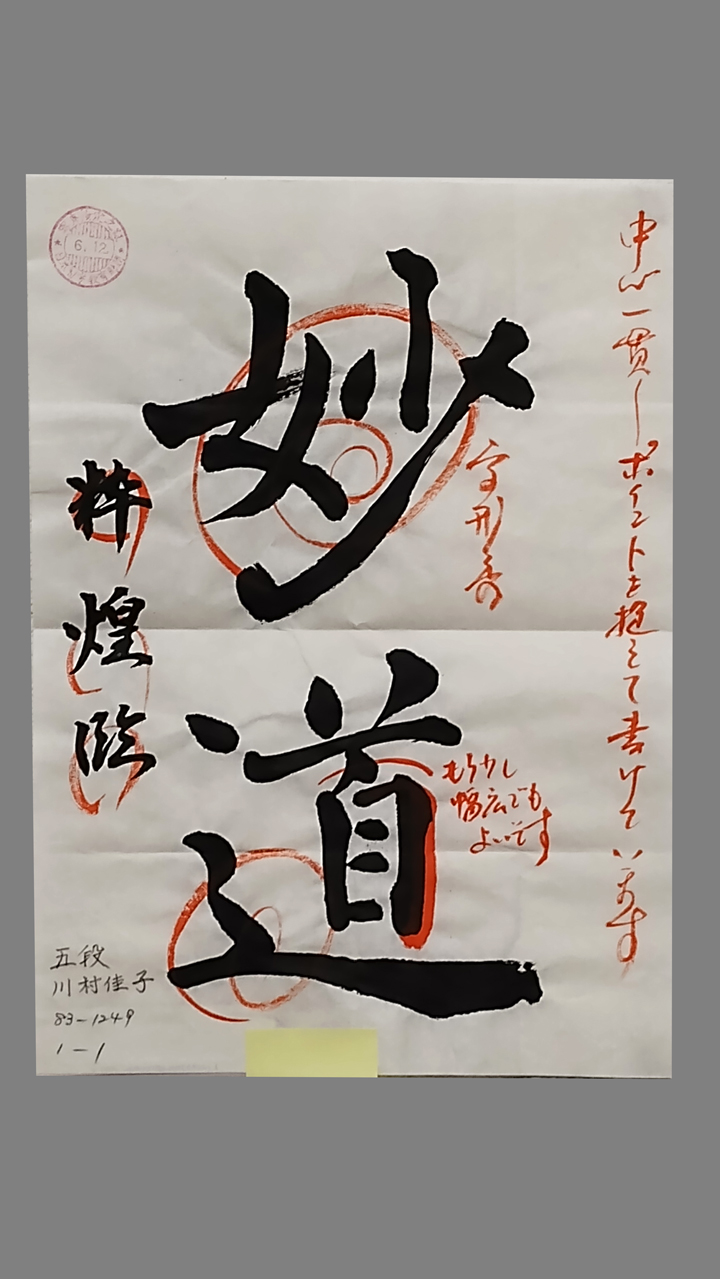 中心一貫しポイントを捉えて書けています
妙道
字形秀
もう少し
幅広でも
よいです
粋煌臨
五段
川村佳子
83-1249
1-1
6.12